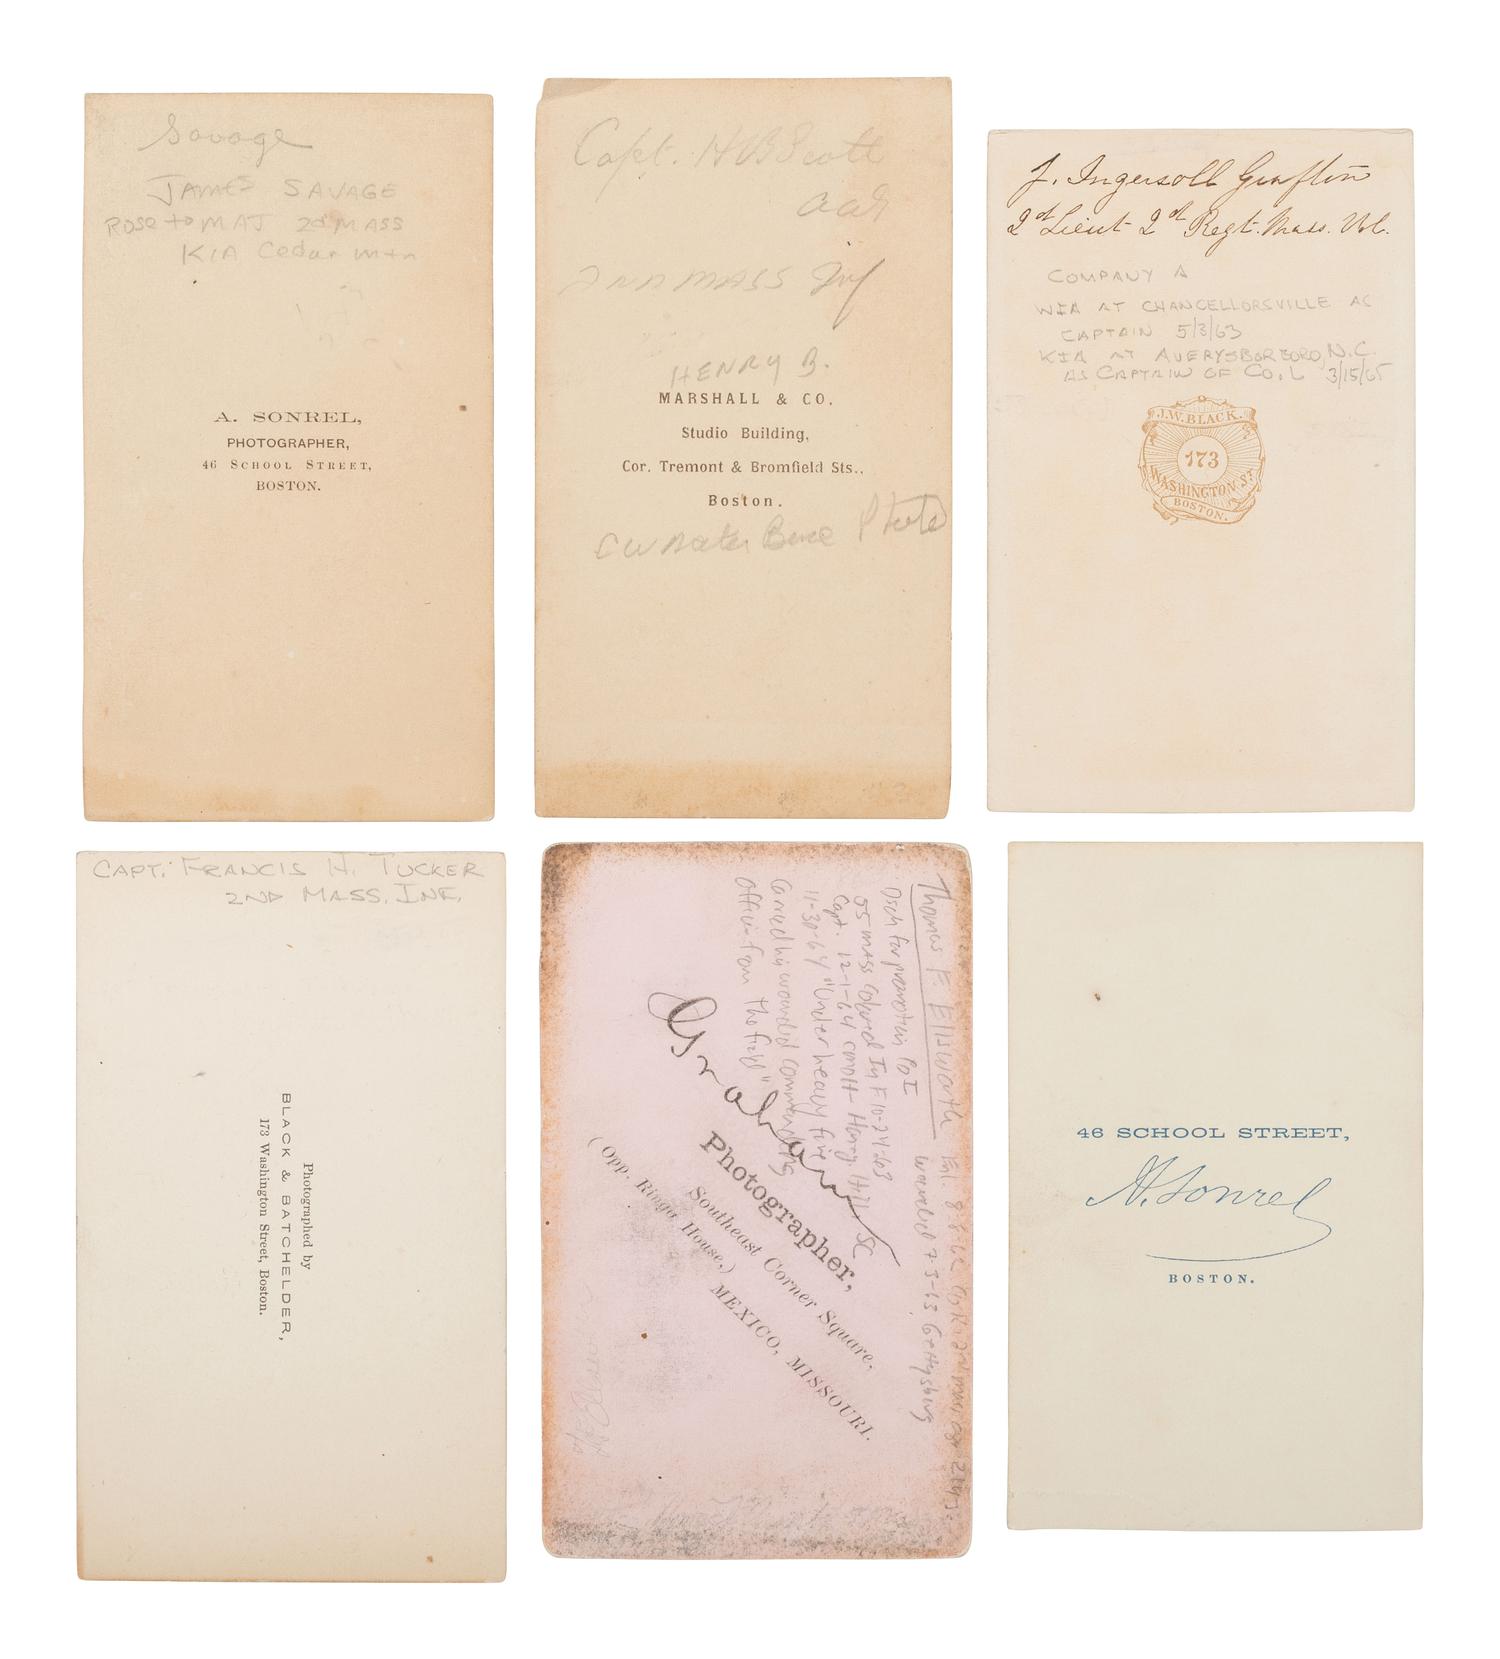 Savage
JAMES SAVAGE
ROSE to MAJ 2d MASS
KIA Cedar Mtn
A. SONREL,
PHOTOGRAPHER,
46 SCHOOL STREET,
BOSTON.
Capt. H B Scott
2ND MASS Inf
HENRY B.
MARSHALL & CO.
Studio Building,
Cor. Tremont & Bromfield Sts.,
Boston.
Photo
J. Ingersoll Grafton
2d Lieut 2d Regt. Mass. Vol.
COMPANY A
WIA AT CHANCELLORSVILLE AS
CAPTAIN 5/3/63
KIA AT AVERYSBORBORO, N.C.
AS CAPTAIN OF CO. L 3/15/65
J.W. BLACK.
173
WASHINGTON ST
BOSTON.
CAPT. FRANCIS H. TUCKER
2ND MASS. INF.
Photographed by
BLACK & BATCHELDER,
173 Washington Street, Boston.
Thomas F. Ellsworth
wounded 7-3-63 Gettysburg
Dsch for promotion
55 MASS Colored Inf 10-24-63
Capt. 12-1-64 CMOH - Honey Hill SC
11-30-64 "Under heavy fire
Carried his wounded commanding
officer from the field"
Graham
Photographer,
Southeast Corner Square,
(Opp. Ringo House,) MEXICO, MISSOURI.
46 SCHOOL STREET,
A. Sonrel
BOSTON.